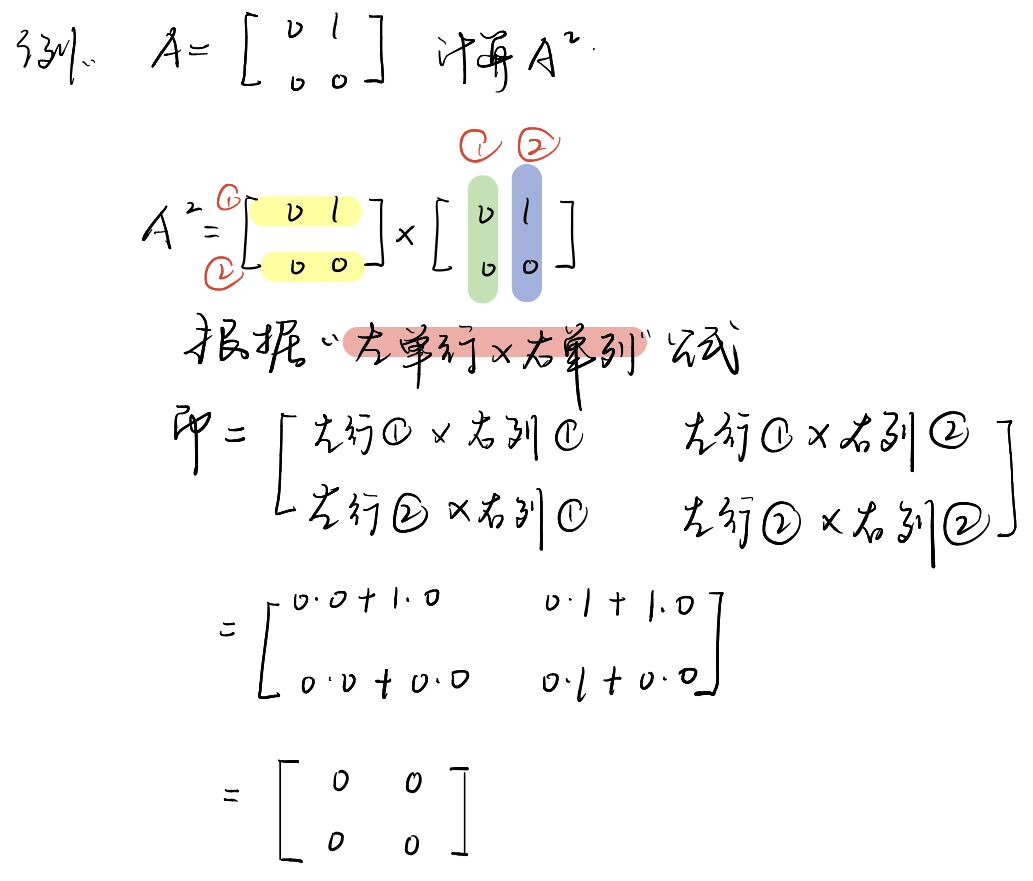 例: A = [ 0 1 0 0 ] 计算 A²
① ②
A² = ① ② [ 0 1 0 0 ] × [ 0 1 0 0 ]
根据“左单行×右单列”公式
即 = [ 左行①×右列① 左行①×右列②
左行②×右列① 左行②×右列② ]
= [ 0·0+1·0 0·1+1·0
0·0+0·0 0·1+0·0 ]
= [ 0 0
0 0 ]